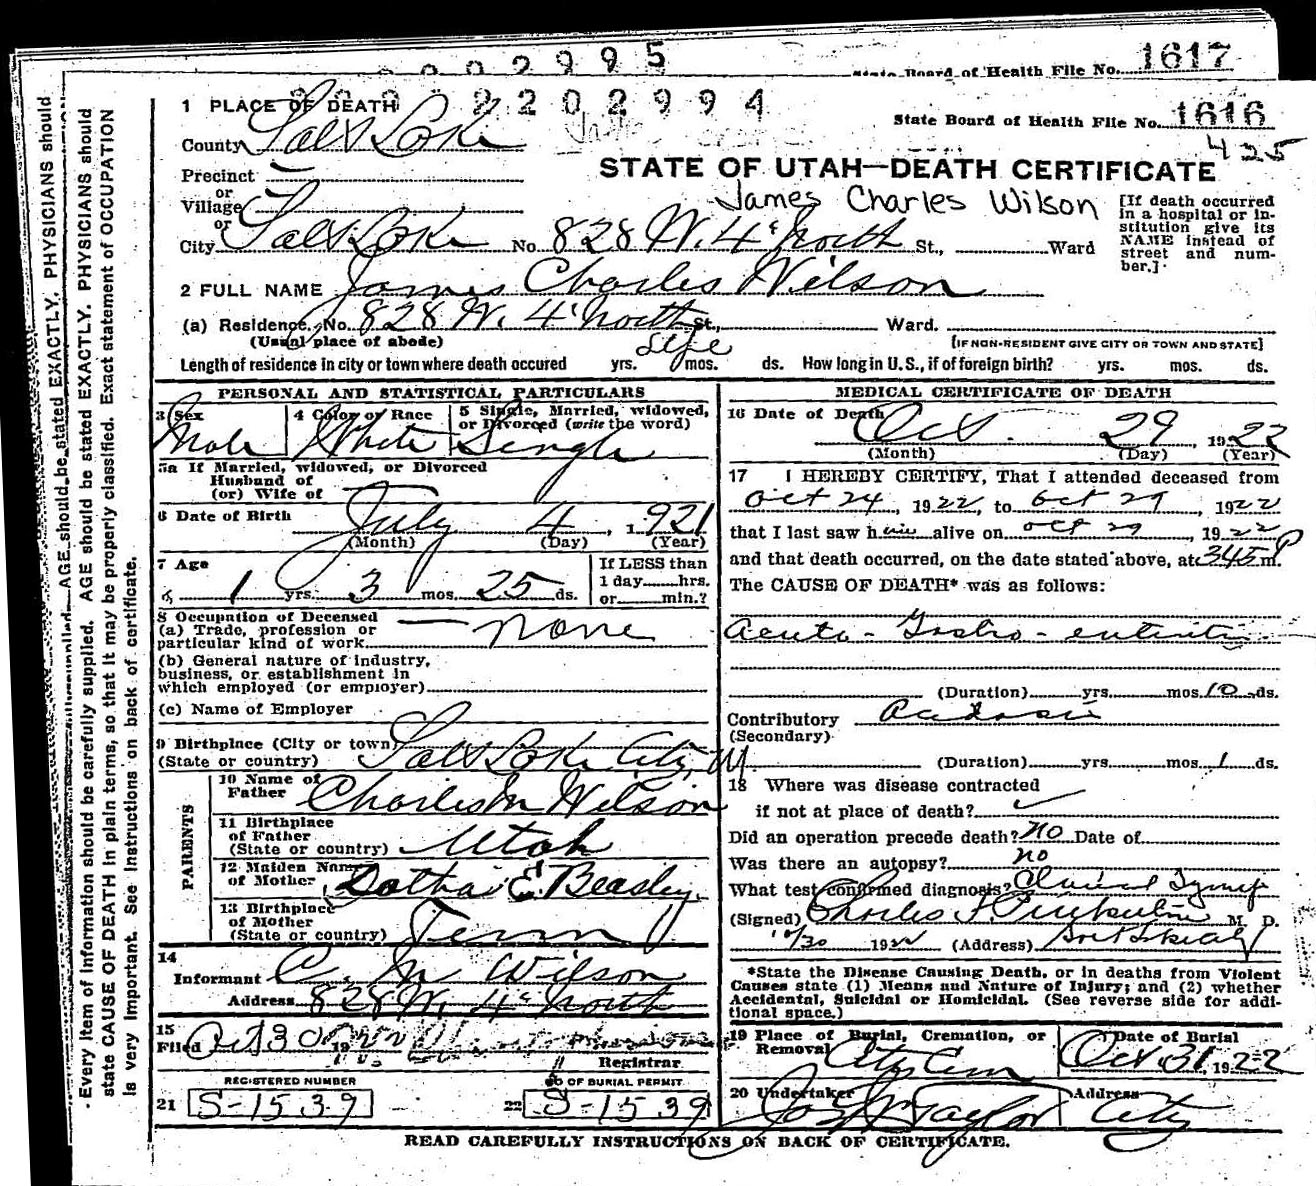 State Board of Health File No. 1617
2995
2202994
State Board of Health File No. 1616
425
1 PLACE OF DEATH
County Salt Lake
STATE OF UTAH—DEATH CERTIFICATE
Precinct
or
Village
or
James Charles Wilson
[If death occurred in a hospital or institution give its NAME instead of street and number.]
City Salt Lake No. 828 W. 4th North St., Ward
2 FULL NAME James Charles Wilson
(a) Residence. No. 828 W. 4th North St., Ward.
(Usual place of abode) [IF NON-RESIDENT GIVE CITY OR TOWN AND STATE]
Length of residence in city or town where death occured Life yrs. mos. ds. How long in U.S., if of foreign birth? yrs. mos. ds.
PERSONAL AND STATISTICAL PARTICULARS
3 Sex Male
4 Color or Race White
5 Single, Married, widowed, or Divorced (write the word) Single
5a If Married, widowed, or Divorced
Husband of
(or) Wife of
6 Date of Birth July 4, 1921
(Month) (Day) (Year)
7 Age 1 yrs. 3 mos. 25 ds.
If LESS than
1 day hrs.
or min.?
8 Occupation of Deceased
(a) Trade, profession or
particular kind of work None
(b) General nature of industry,
business, or establishment in
which employed (or employer)
(c) Name of Employer
9 Birthplace (City or town)
(State or country) Salt Lake City, U
PARENTS
10 Name of
Father Charles M Wilson
11 Birthplace
of Father
(State or country) Utah
12 Maiden Name
of Mother E. Beasley
13 Birthplace
of Mother
(State or country) Tenn
14
Informant C. M Wilson
Address 828 W. 4th North
15
Filed Oct 30 1922
Registrar
REGISTERED NUMBER
21 S-1539
NO OF BURIAL PERMIT
22 S-1539
MEDICAL CERTIFICATE OF DEATH
16 Date of Death Oct. 29, 1922
(Month) (Day) (Year)
17 I HEREBY CERTIFY, That I attended deceased from
Oct 24, 1922, to Oct 29, 1922
that I last saw him alive on Oct 29, 1922
and that death occurred, on the date stated above, at 345 P m.
The CAUSE OF DEATH* was as follows:
Acute - Gastro - enteritis
(Duration) yrs. mos. 10 ds.
Contributory Acidosis
(Secondary)
(Duration) yrs. mos. 1 ds.
18 Where was disease contracted
if not at place of death?
Did an operation precede death? No Date of
Was there an autopsy? no
What test confirmed diagnosis? Clinical
(Signed) Charles M. D.
10/30 1922 (Address)
*State the Disease Causing Death, or in deaths from Violent
Causes state (1) Means and Nature of Injury; and (2) whether
Accidental, Suicidal or Homicidal. (See reverse side for addi-
tional space.)
19 Place of Burial, Cremation, or
Removal City Cem
Date of Burial
Oct 31, 1922
20 Undertaker Jos Wm Taylor
Address City
READ CAREFULLY INSTRUCTIONS ON BACK OF CERTIFICATE.
AGE should be stated EXACTLY. PHYSICIANS should
Every item of information should be carefully supplied. AGE should be stated EXACTLY. PHYSICIANS should
state CAUSE OF DEATH in plain terms, so that it may be properly classified. Exact statement of OCCUPATION
is very important. See instructions on back of certificate.